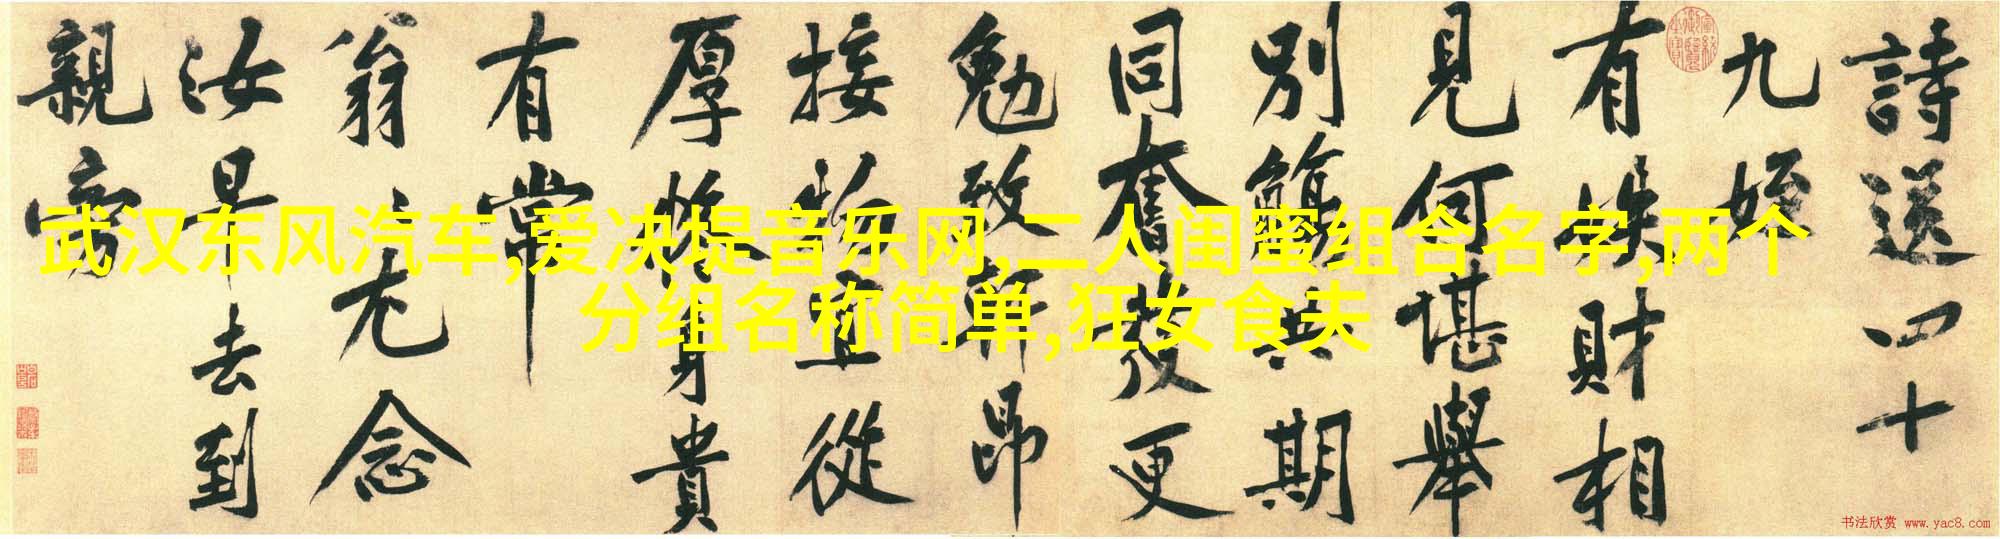 詩送四十
九姪
有姝財相
見何堪舉
別觴共期
同奮發更
勉致軒昂
接物宜從
厚將身貴
有常
翁翁尤念
汝早去到
親旁
武汉东风汽车,爱决堤音乐网,二人闺蜜组合名字,两个
分组名称简单,狂女食夫
书法欣赏 www.yac8.com